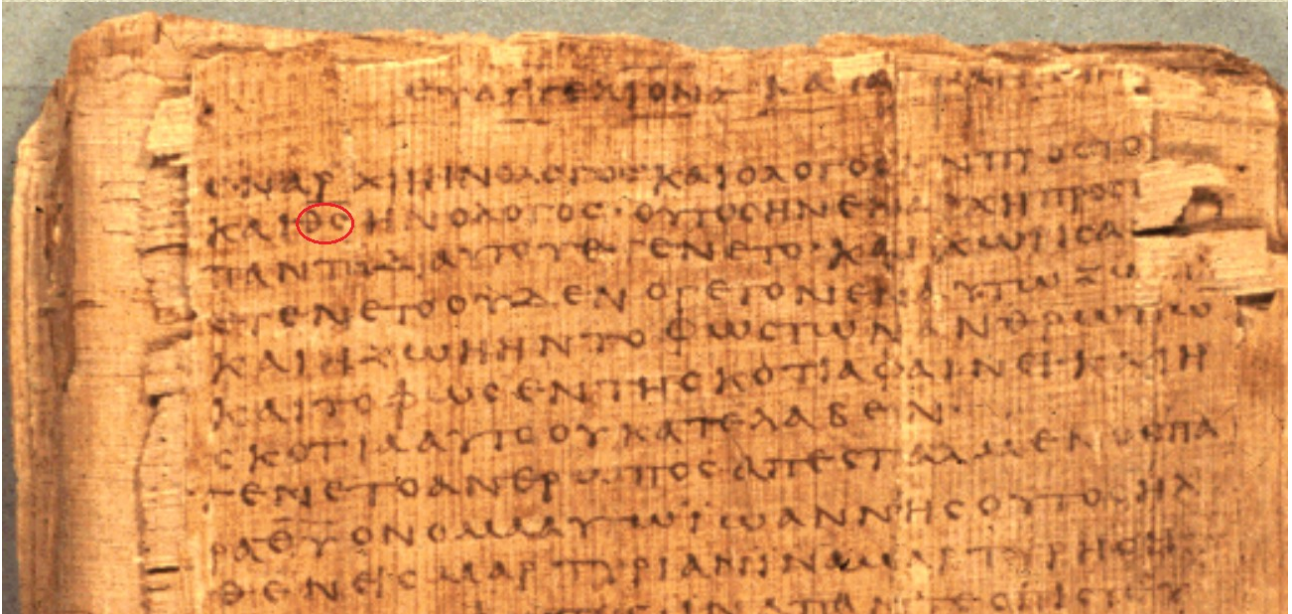 ΕΥΑΓΓΕΛΙΟΝ ΚΑΤΑ
ΕΝΑΡΧΗΗΝΟΛΟΓΟϹΚΑΙΟΛΟΓΟϹΗΝΠΡΟϹΤΟ
ΚΑΙΘϹΗΝΟΛΟΓΟϹ·ΟΥΤΟϹΗΝΕΝΑΡΧΗΠΡΟϹΤ
ΠΑΝΤΑΔΙΑΥΤΟΥΕΓΕΝΕΤΟ·ΚΑΙΧΩΡΙϹΑ
ΕΓΕΝΕΤΟΟΥΔΕΝΟΓΕΓΟΝΕΝΑΥΤΩΖΩ
ΚΑΙΗΖΩΗΗΝΤΟΦΩϹΤΩΝΑΝΘΡΩΠΩ
ΚΑΙΤΟΦΩϹΕΝΤΗϹΚΟΤΙΑΦΑΙΝΕΙΚΑΙΗ
ϹΚΟΤΙΑΑΥΤΟΟΥΚΑΤΕΛΑΒΕΝ
ΕΓΕΝΕΤΟΑΝΘΡΩΠΟϹΑΠΕϹΤΑΛΜΕΝΟϹΠΑ
ΡΑΘΥΟΝΟΜΑΑΥΤΩΪΩΑΝΝΗϹΟΥΤΟϹΗΛ
ΘΕΝΕΙϹΜΑΡΤΥΡΙΑΝΙΝΑΜΑΡΤΥΡΗϹΗ